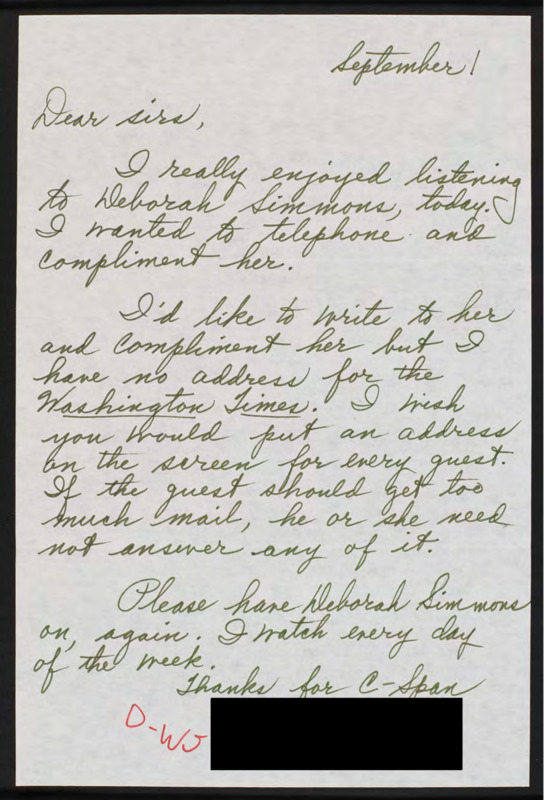 September 1
Dear sirs,
I really enjoyed listening
to Deborah Simmons, today.
I wanted to telephone and
compliment her.
I'd like to write to her
and compliment her but I
have no address for the
Washington Times. I wish
you would put an address
on the screen for every guest.
If the guest should get too
much mail, he or she need
not answer any of it.
Please have Deborah Simmons
on, again. I watch every day
of the week.
Thanks for C-Span
D-WJ